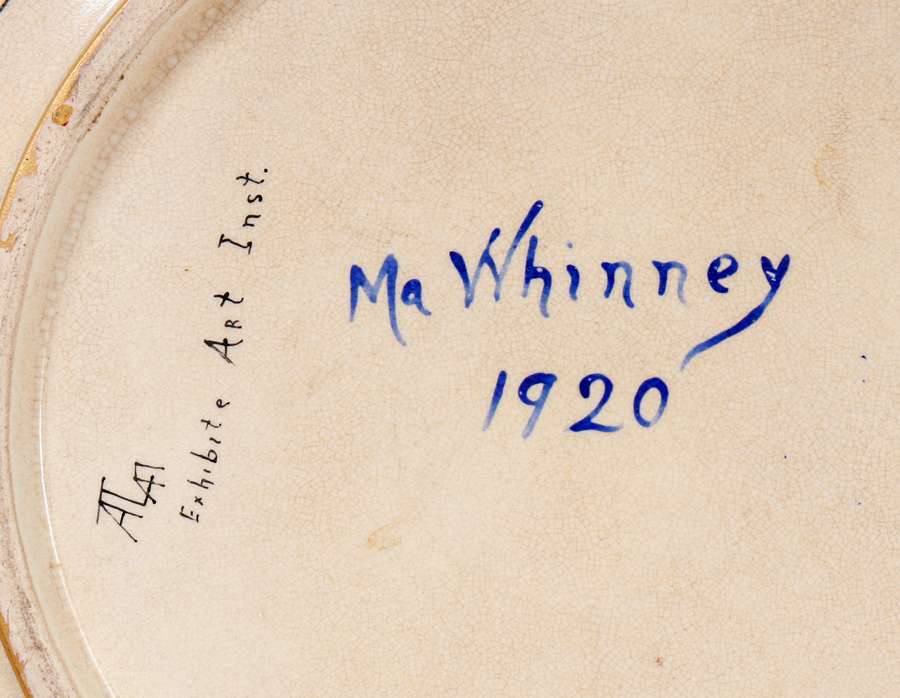 Ma Whinney
1920
Exhibite Art Inst.